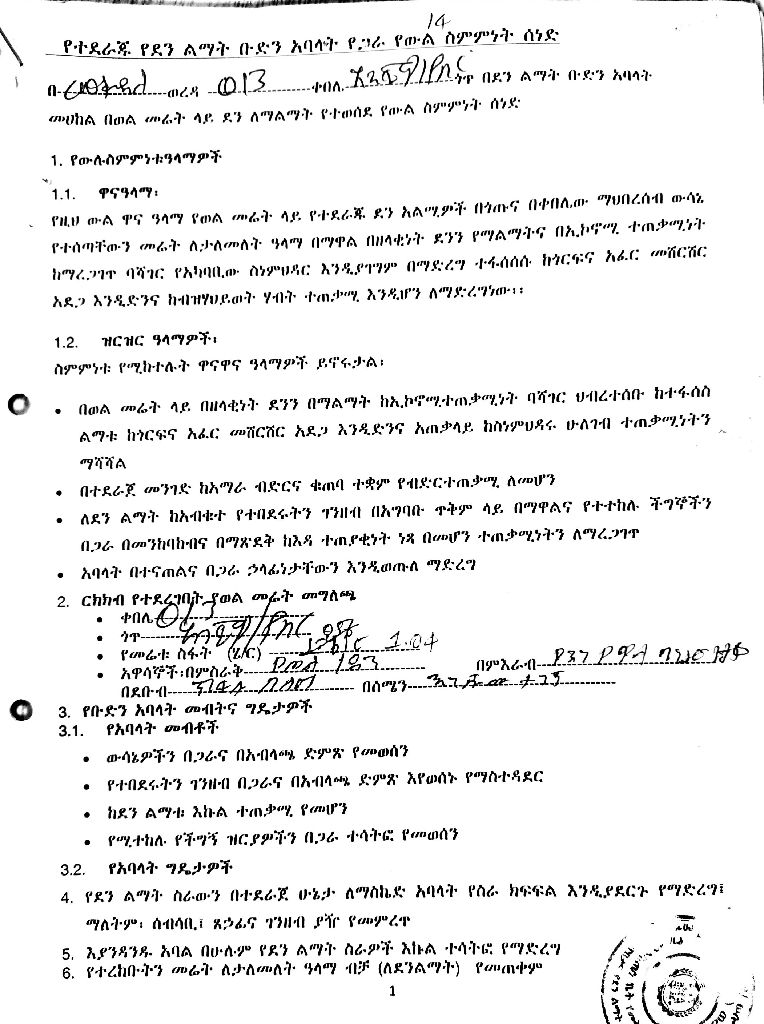 14
የተደራጁ የደን ልማት ቡድን አባላት የጋራ የውል ስምምነት ሰነድ
በ ወረዳ 013 ቀበሌ ጎጥ በደን ልማት ቡድን አባላት
መሀከል በወል መሬት ላይ ደን ለማልማት የተወሰደ የውል ስምምነት ሰነድ
1. የውሉስምምነቱዓላማዎች
1.1. ዋናዓላማ፡
የዚህ ውል ዋና ዓላማ የወል መሬት ላይ የተደራጁ ደን አልሚዎች በጎጡና በቀበሌው ማህበረሰብ ውሳኔ
የተሰጣቸውን መሬት ለታለመለት ዓላማ በማዋል በዘላቂነት ደንን የማልማትና በኢኮኖሚ ተጠቃሚነት
ከማረጋገጥ ባሻገር የአካባቢው ስነምህዳር እንዲያገግም በማድረግ ተፋሰሰሱ ከጎርፍና አፈር መሸርሸር
አደጋ እንዲድንና ከብዝሃህይወት ሃብት ተጠቃሚ እንዲሆን ለማድረግነው፡፡
1.2. ዝርዝር ዓላማዎች፡
ስምምነቱ የሚከተሉት ዋናዋና ዓላማዎች ይኖሩታል፡
• በወል መሬት ላይ በዘላቂነት ደንን በማልማት ከኢኮኖሚተጠቃሚነት ባሻገር ህብረተሰቡ ከተፋሰስ
ልማቱ ከጎርፍና አፈር መሸርሸር አደጋ እንዲድንና አጠቃላይ ከስነምህዳሩ ሁለገብ ተጠቃሚነትን
ማሻሻል
• በተደራጀ መንገድ ከአማራ ብድርና ቁጠባ ተቋም የብድርተጠቃሚ ለመሆን
• ለደን ልማት ከአብቁተ የተበደሩትን ገንዘብ በአግባቡ ጥቅም ላይ በማዋልና የተተከሉ ችግኞችን
በጋራ በመንከባከብና በማጽደቅ ከእዳ ተጠያቂነት ነጻ በመሆን ተጠቃሚነትን ለማረጋገጥ
• አባላት በተናጠልና በጋራ ኃላፊነታቸውን እንዲወጡለ ማድረግ
2. ርክክብ የተደረገበት የወል መሬት መግለጫ
• ቀበሌ 013
• ጎጥ
• የመሬቱ ስፋት (ሄ/ር) 1.04
• አዋሳኞች፡በምስራቅ የወል በምእራብ
በደቡብ በሰሜን
3. የቡድን አባላት መብትና ግዴታዎች
3.1. የአባላት መብቶች
• ውሳኔዎችን በጋራና በአብላጫ ድምጽ የመወሰን
• የተበደሩትን ገንዘብ በጋራና በአብላጫ ድምጽ እየወሰኑ የማስተዳደር
• ከደን ልማቱ እኩል ተጠቃሚ የመሆን
• የሚተከሉ የችግኝ ዝርያዎችን በጋራ ተሳትፎ የመወሰን
3.2. የአባላት ግዴታዎች
4. የደን ልማት ስራውን በተደራጀ ሁኔታ ለማስኬድ አባላት የስራ ክፍፍል እንዲያደርጉ የማድረግ፤
ማለትም፡ ሰብሳቢ፤ ጸኃፊና ገንዘብ ያዥ የመምረጥ
5. እያንዳንዱ አባል በሁሉም የደን ልማት ስራዎች እኩል ተሳትፎ የማድረግ
6. የተረከቡትን መሬት ለታለመለት ዓላማ ብቻ (ለደንልማት) የመጠቀም
1